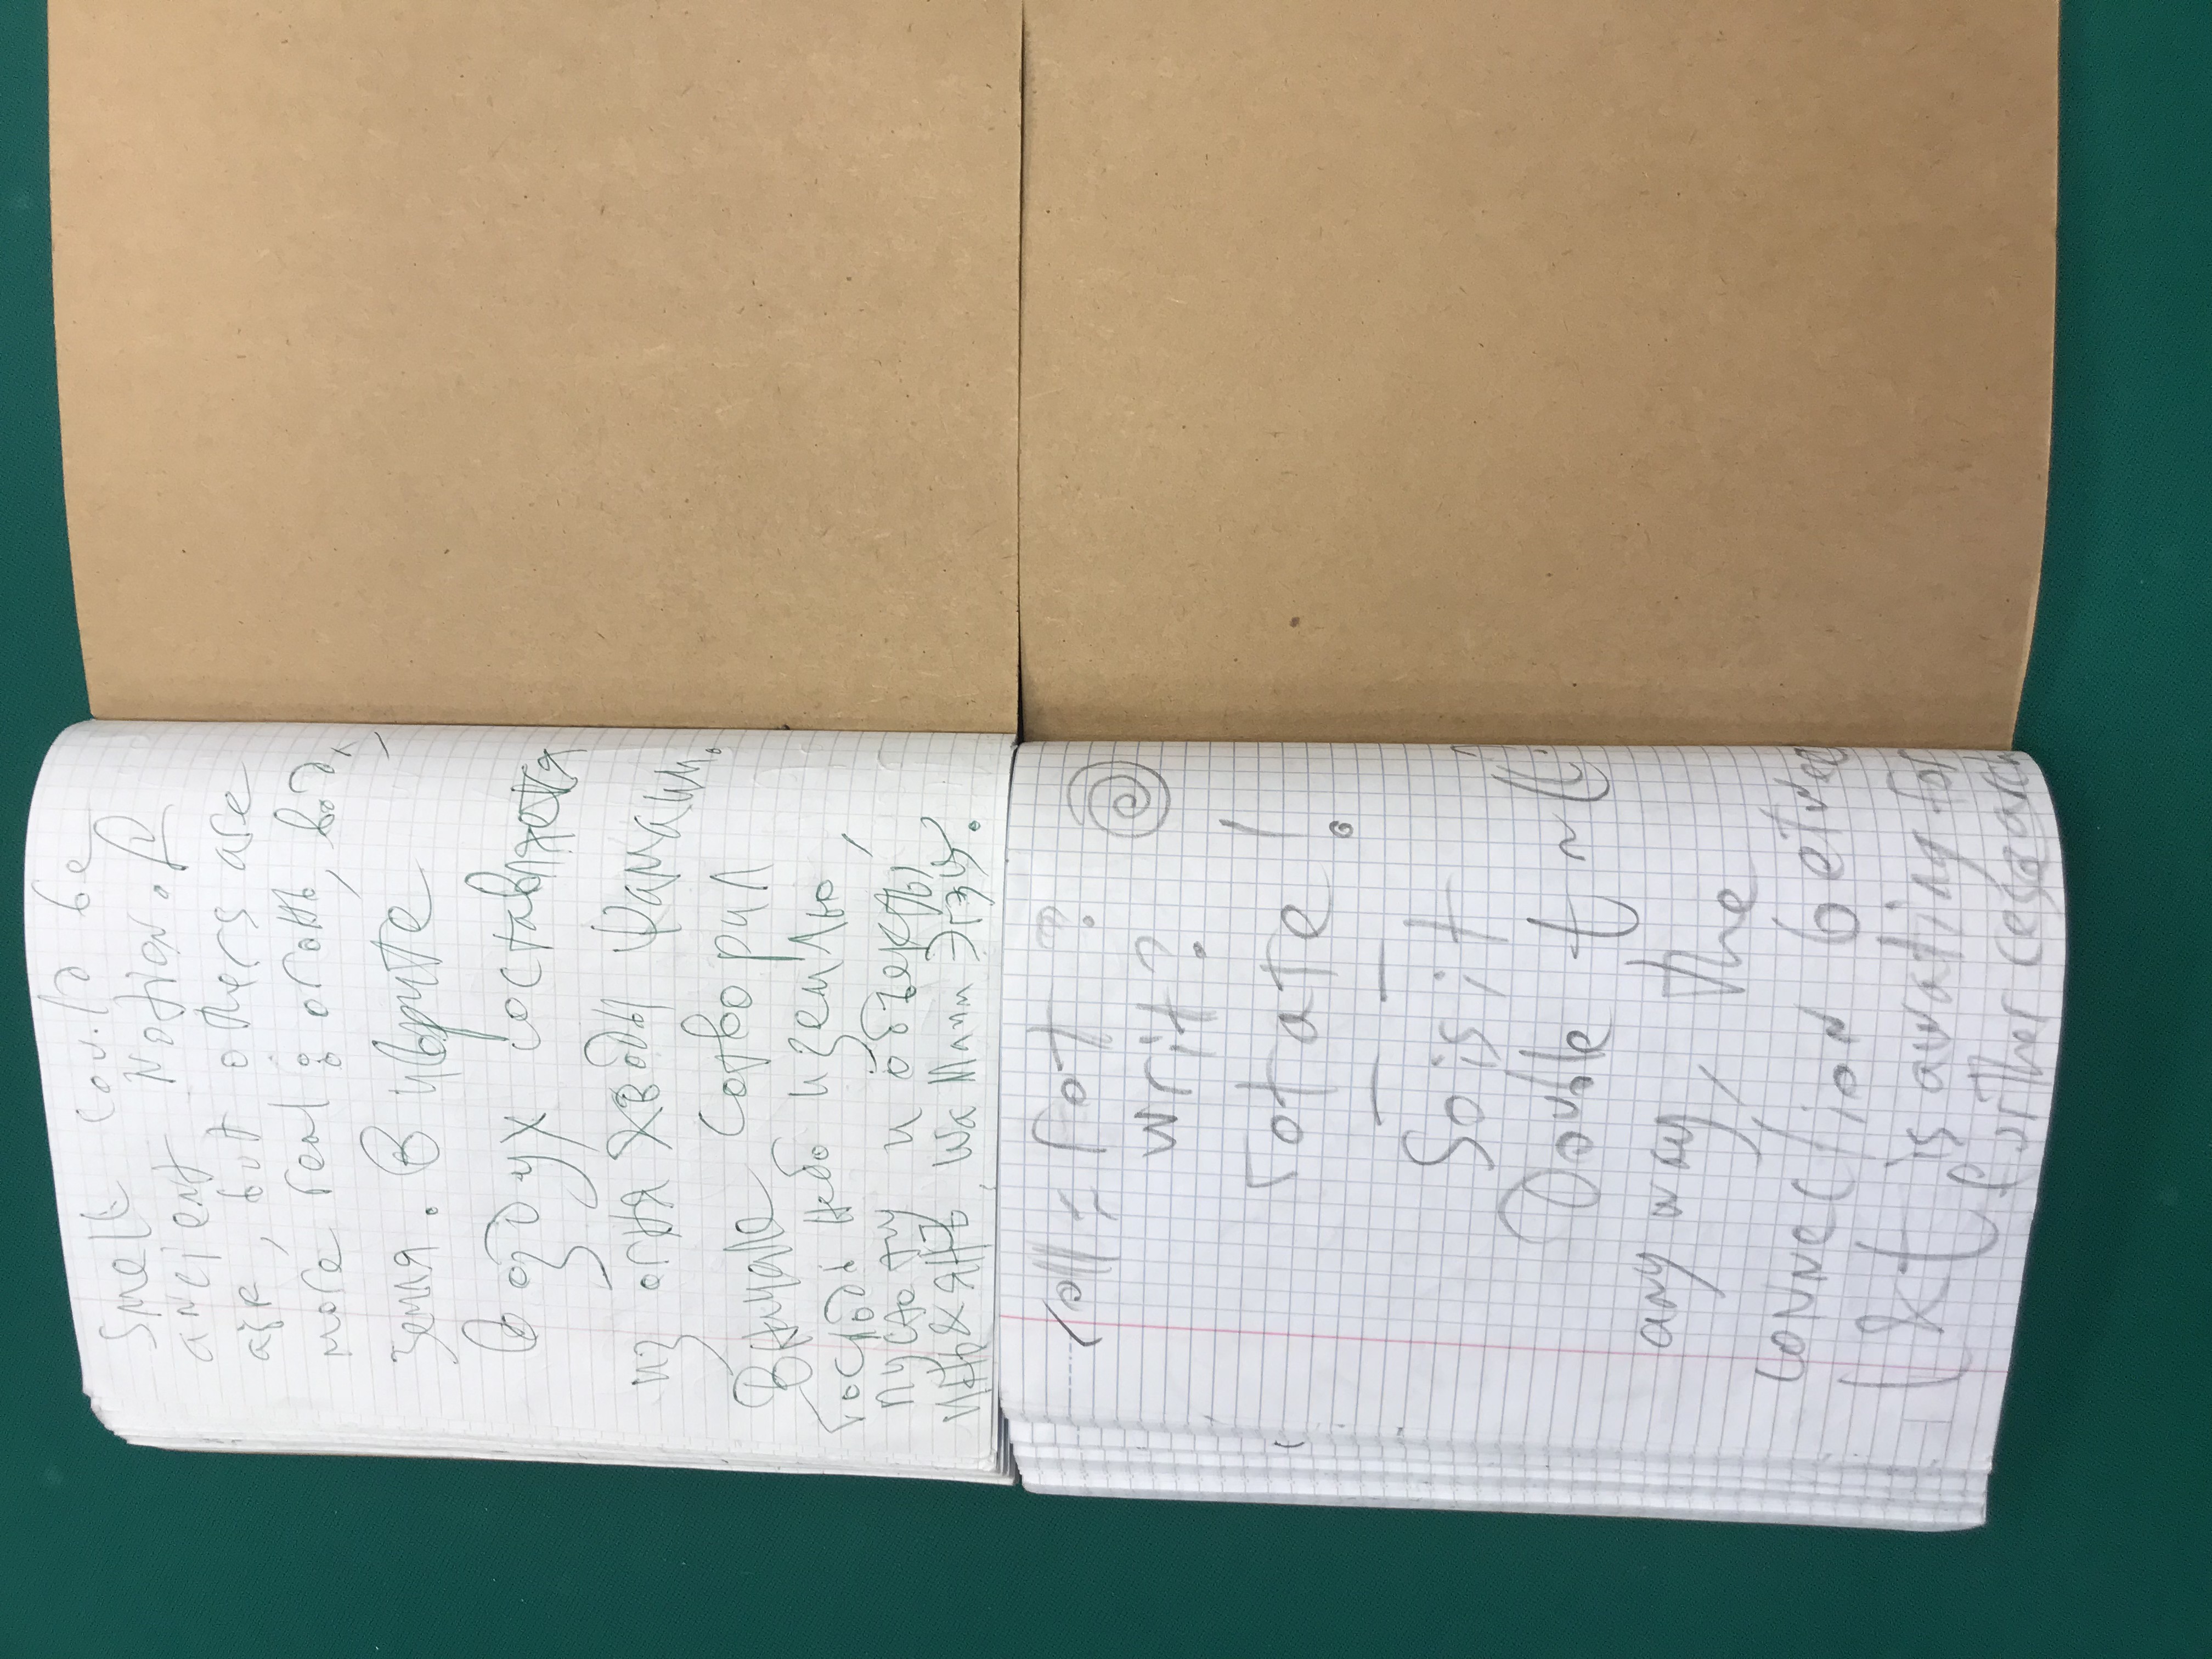 Smell could be
ancient Notion.
air, but others are
more real: огонь, вода,
земля. В иврите
Воздух составляется
из огня & воды Шамаим.
Вначале сотворил
Господь небо и землю,
пустоту и объекты,
инь & янь,
roll = rot?
writ?
rotate!
So is it
Double t ~ ll?
any way, the
connection between
l & t is awating for
further research